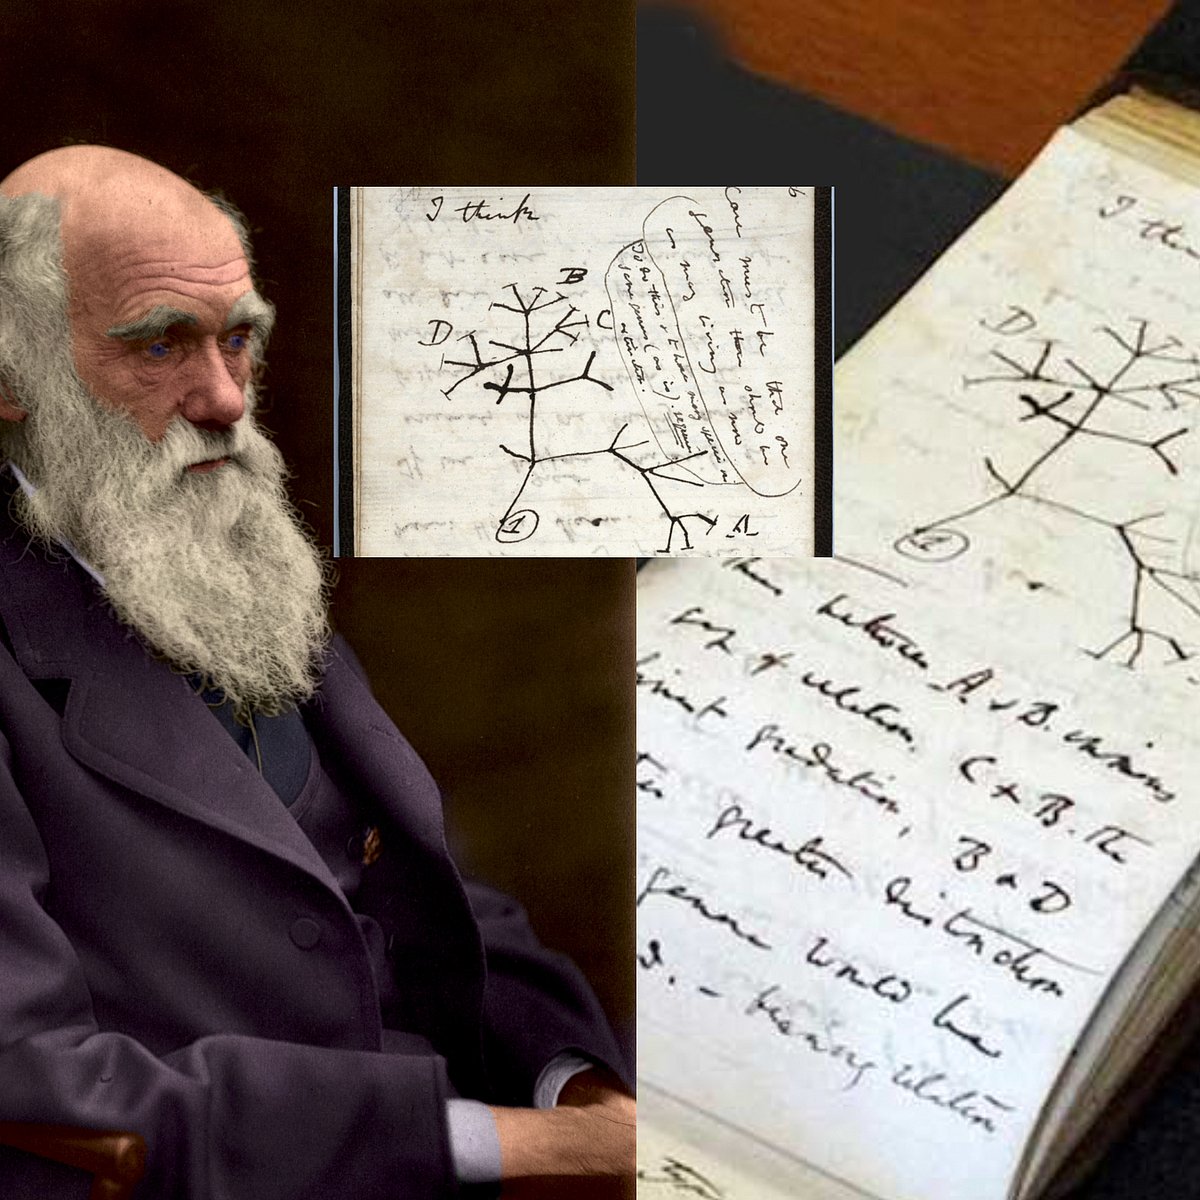 I think
B
D
C
A
1
Case must be that one
generation then should be
as many living as now
To do this & to have many species in
same genus (as is). requires
extinction
I thi
D
1
Thus between A & B. immens
gap of relation. C & B. The
finest gradation, B & D
greater distinction
genera would be
— bearing relation